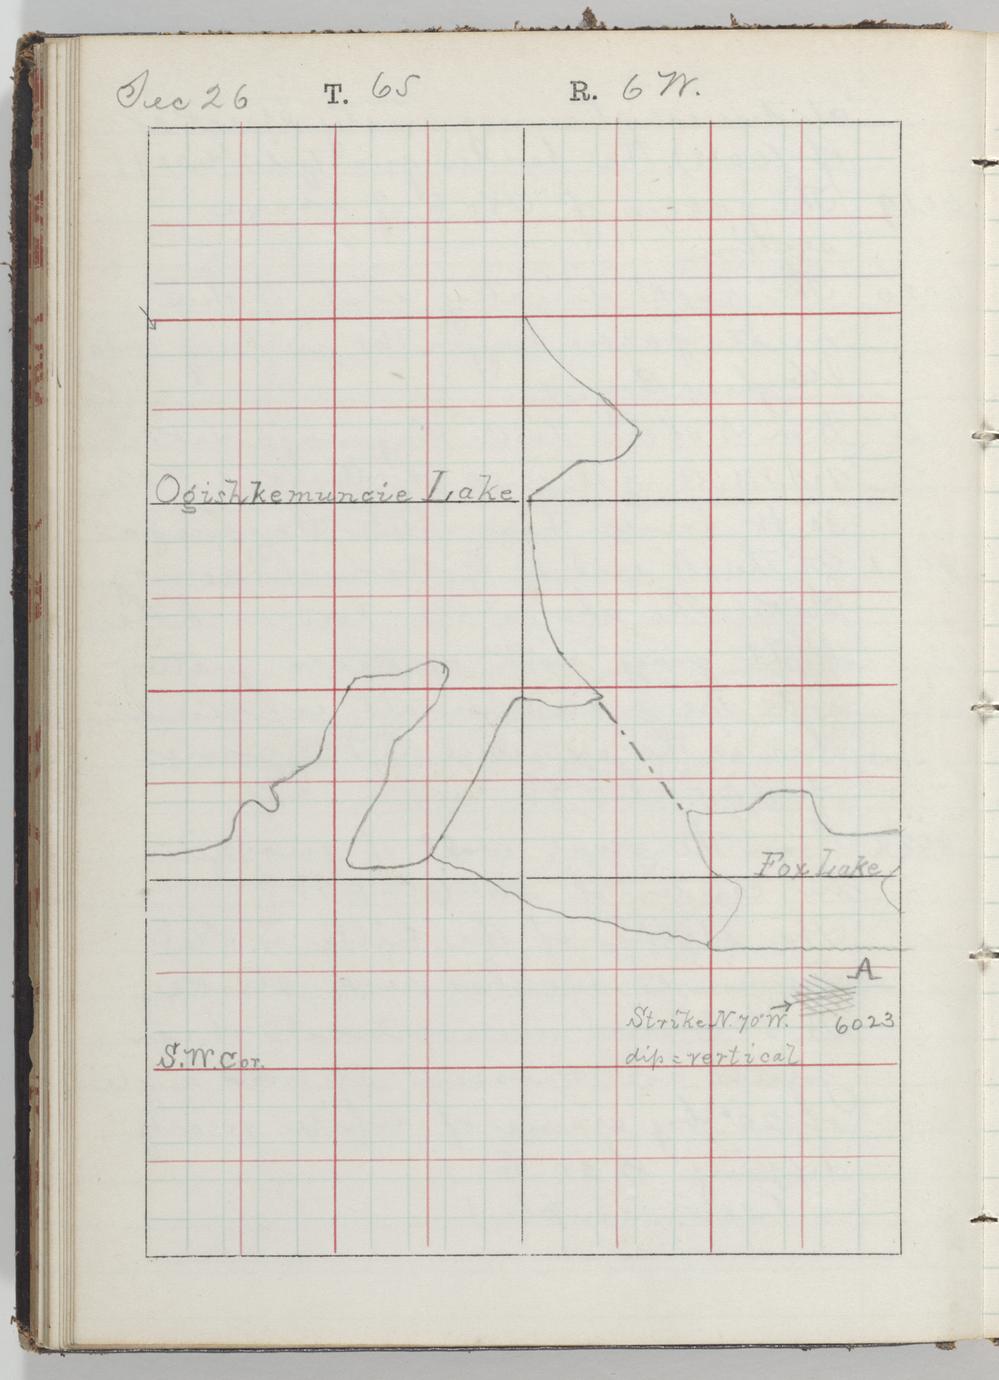 Sec 26 T. 65 R. 6 W.
Ogishkemuncie Lake
Fox Lake
A
Strike N. 70° W.
6023
dip = vertical
S.W. Cor.